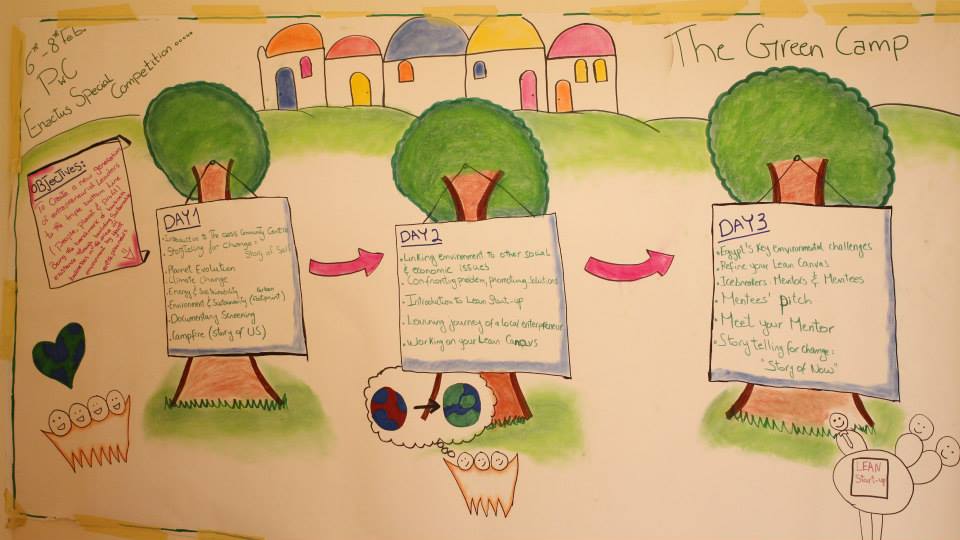 6th - 8th Feb.
PwC
Enactus Special
Competition .....
The Green Camp
Objectives:
to Create a new generation
of entrepreneurial leaders
to the triple bottom line
(People, planet & Profit)
DAY 1
• Introduction to The Community
• Storytelling for Change:
Story of Self
• Planet Evolution
• Climate Change
• Energy & Sustainability
• Environment & Sustainability (Carbon Footprint)
• Documentary Screening
• Campfire (Story of US)
DAY 2
• Linking Environment to other social
& economic issues
• Confronting problem, Promoting Solutions
• Introduction to Lean Start-up
• Learning journey of a local enterpreneur
• Working on your Lean Canavs
DAY 3
• Egypt's Key Environmental challenges
• Refine your Lean Canvas
• Icebreakers Mentors & Mentees
• Mentees' pitch
• Meet your Mentor
• Story telling for change:
"Story of Now"
LEAN
Start-up